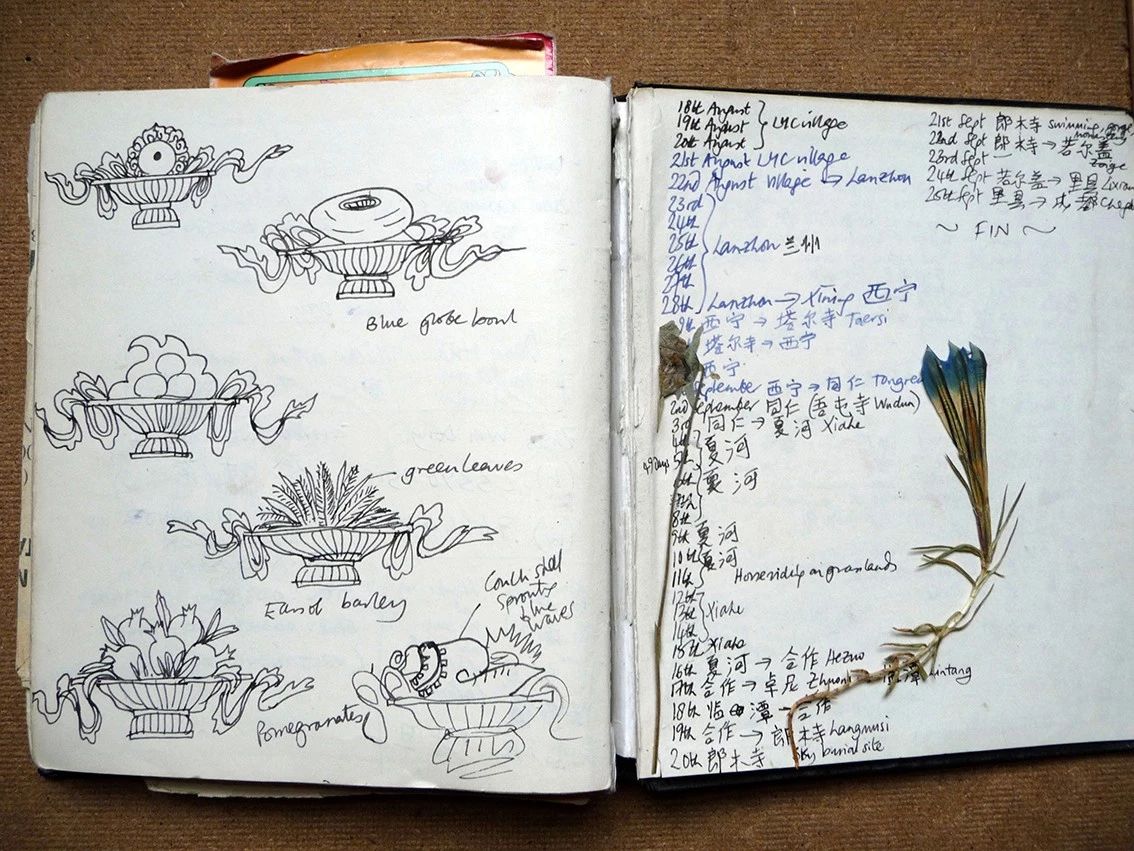 Blue globe bowl
green leaves
Ears of barley
Conch shell
sprouts
blue
waves
Pomegranates
18th August
19th August LMC village
20th August
21st August LMC village
22nd August village → Lanzhou
23rd
24th
25th Lanzhou 兰州
26th
27th
28th Lanzhou → Xining 西宁
9th 西宁 → 塔尔寺 Taersi
塔尔寺 → 西宁
西宁
September 西宁 → 同仁 Tongren
2nd September 同仁 (吾屯寺 Wudun)
3rd 同仁 → 夏河 Xiahe
4th
5th 夏河
6th 夏河
7th
8th
9th 夏河
10th 夏河
11th Horseriding on grasslands
12th
13th Xiahe
14th
15th Xiahe
16th 夏河 → 合作 Hezuo
17th 合作 → 卓尼 Zhuoni 潭 Lintang
18th 临潭 → 合作
19th 合作 → 郎木寺 Langmusi
20th 郎木寺 sky burial site
21st Sept 郎木寺 swimming,
22nd Sept 郎木寺 → 若尔盖
23rd Sept — Zoige
24th Sept 若尔盖 → 里县 Lixian
25th Sept 里县 → 成都 Chengdu
~ FIN ~